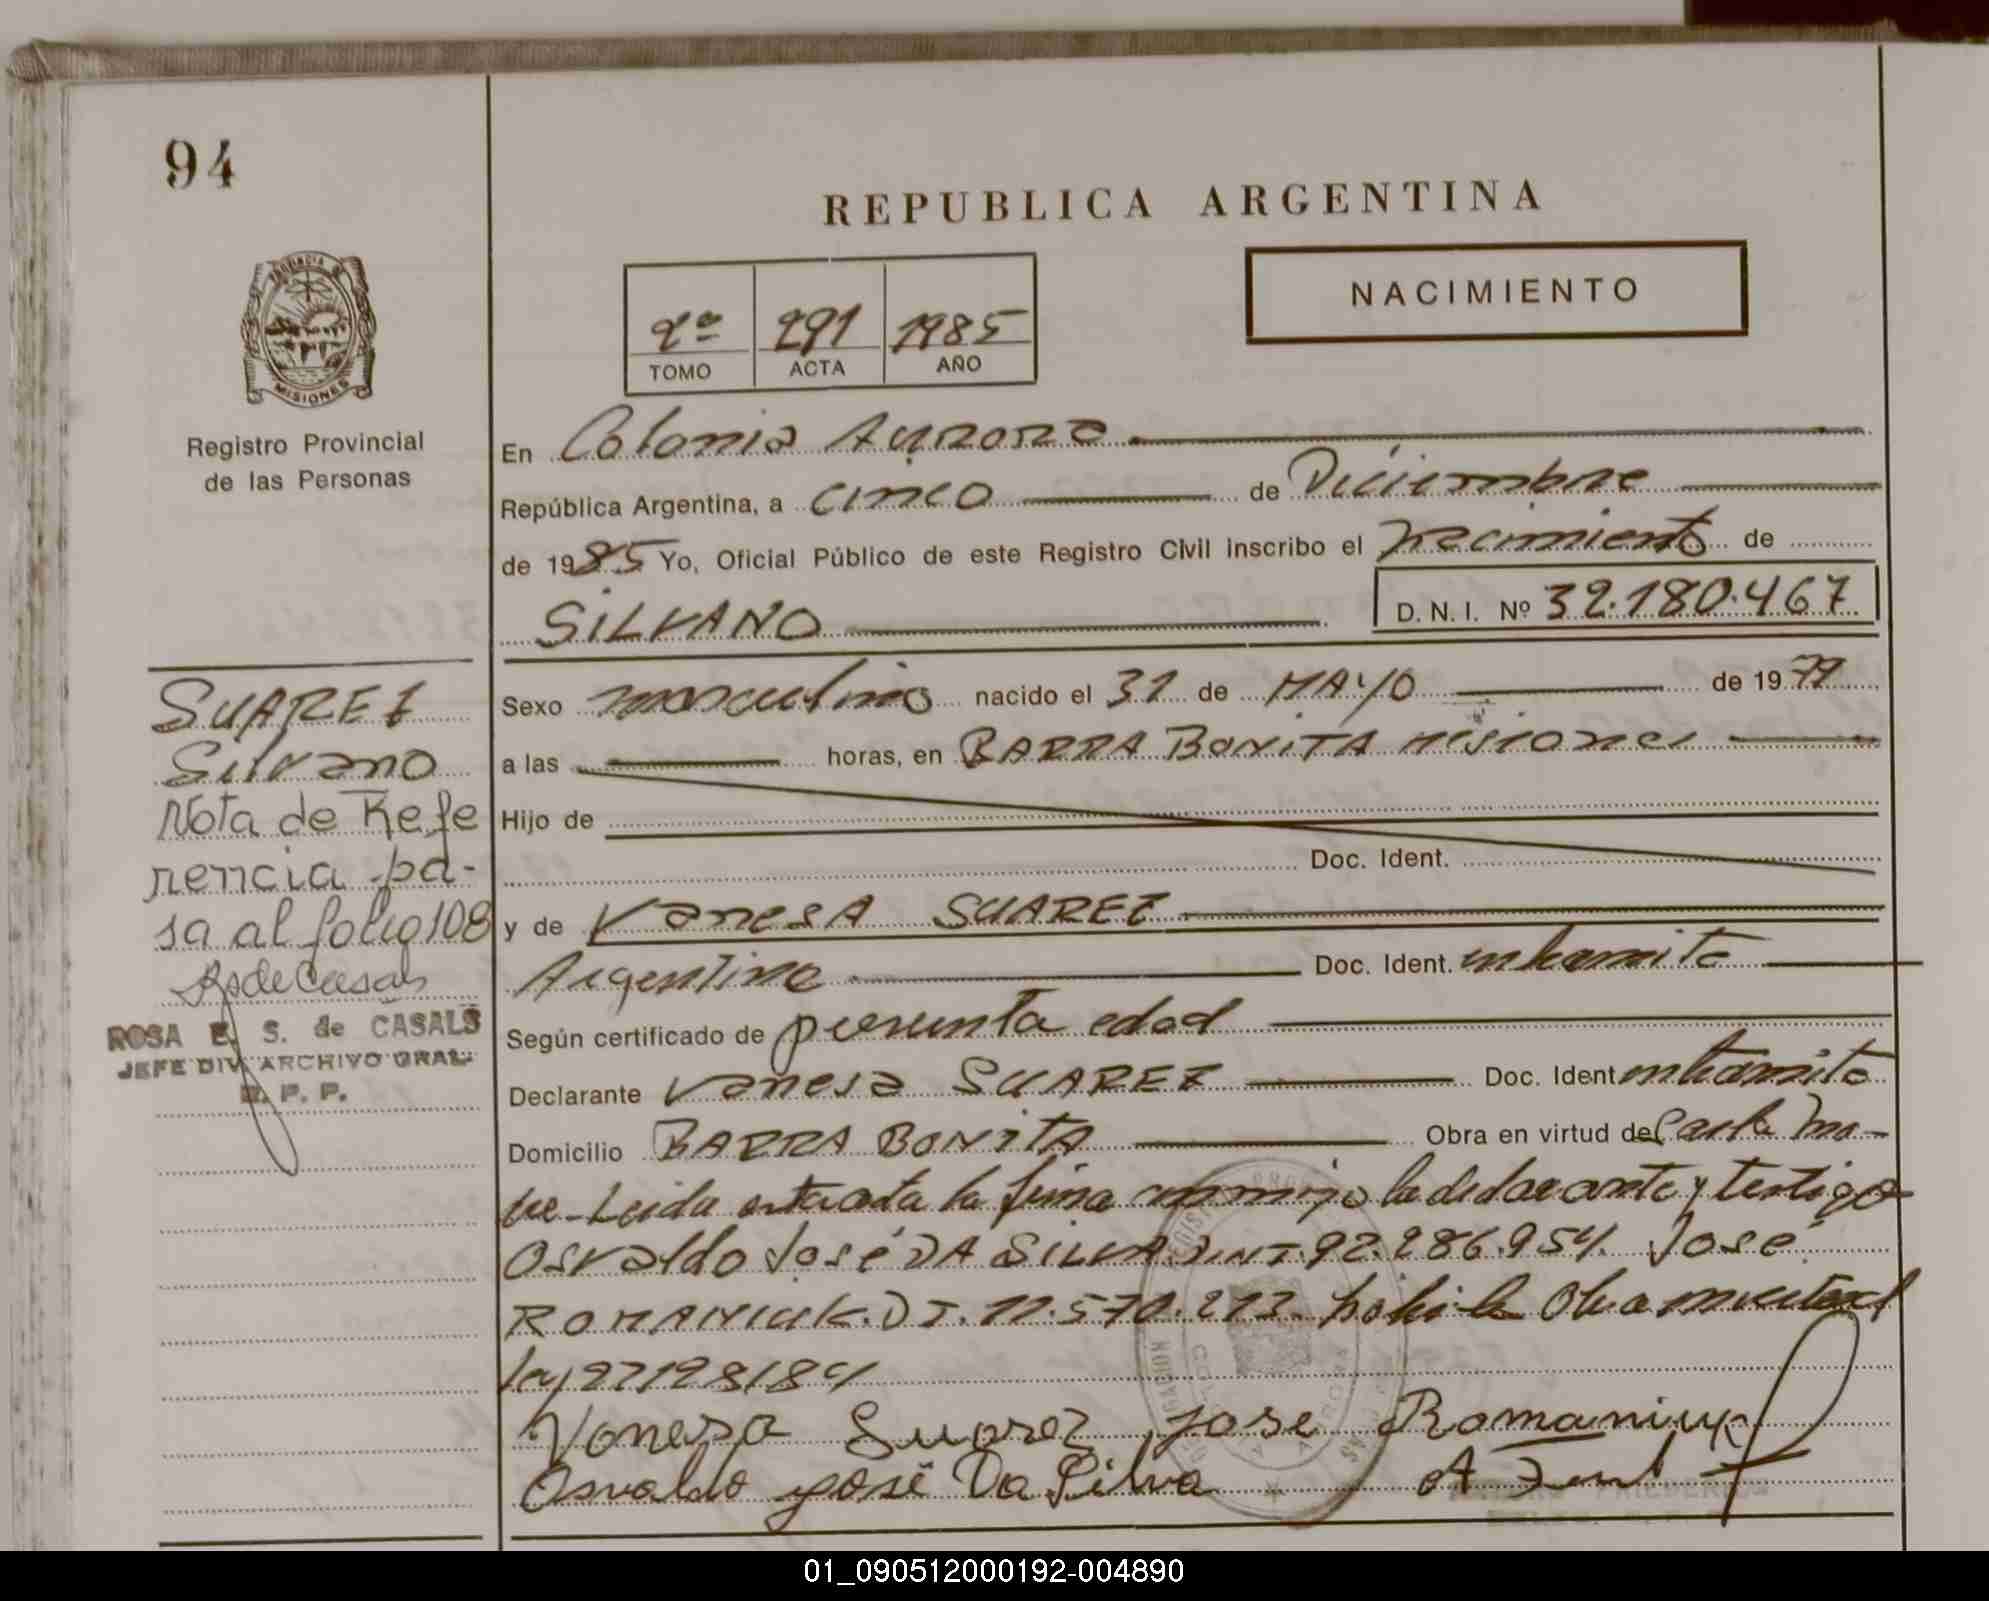 94
REPUBLICA ARGENTINA
NACIMIENTO
2º 291 1985
TOMO ACTA AÑO
PROVINCIA DE
MISIONES
Registro Provincial
de las Personas
En Colonia Aurora
República Argentina, a cinco de Diciembre
de 1985 Yo, Oficial Público de este Registro Civil inscribo el nacimiento de
SILVANO D. N. I. Nº 32.180.467
SUAREZ
Silvano
Nota de Refe
rencia pa-
sa al folio 108
RsdeCasals
ROSA E. S. de CASALS
JEFE DIV. ARCHIVO GRAL.
R. P. P.
Sexo masculino nacido el 31 de MAYO de 1979
a las horas, en BARRA BONITA misiones
Hijo de
Doc. Ident.
y de Vanesa SUAREZ
Argentina Doc. Ident. intramite
Según certificado de presunta edad
Declarante Vanesa SUAREZ Doc. Ident intramite
Domicilio BARRA BONITA Obra en virtud de Parte
Leida esta acta la firma conmigo la declarante y testigos
Osvaldo José DA SILVA DNI. 92.286.954. José
ROMANIUK. DI. 11.570.213. Obra en virtud
ley 22128/84
Vanesa Suarez Jose Romaniuk
Osvaldo José Da Silva
01_090512000192-004890